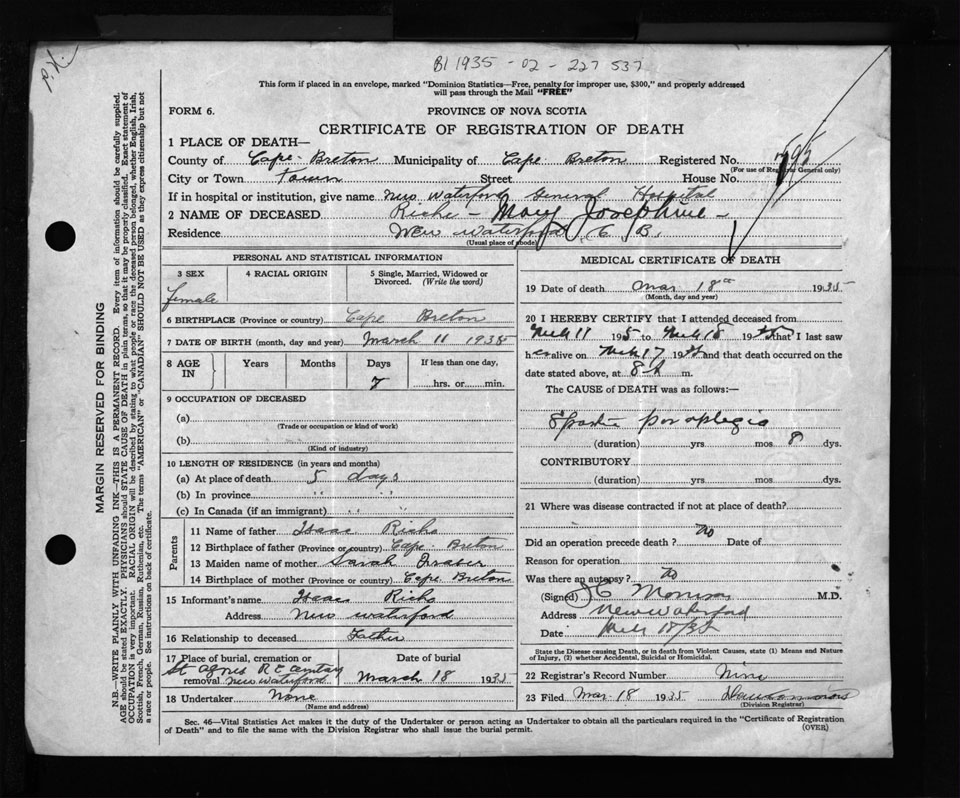 B1 1935 - 02 - 227 537
This form if placed in an envelope, marked "Dominion Statistics—Free, penalty for improper use, $300," and properly addressed
will pass through the Mail "FREE"
FORM 6.
PROVINCE OF NOVA SCOTIA
CERTIFICATE OF REGISTRATION OF DEATH
1 PLACE OF DEATH—
County of Cape Breton Municipality of Cape Breton Registered No.
(For use of Registrar General only)
City or Town Town Street House No.
If in hospital or institution, give name New Waterford General Hospital
2 NAME OF DECEASED Riche - Mary Josephine -
Residence New Waterford C. B.
(Usual place of abode)
PERSONAL AND STATISTICAL INFORMATION
3 SEX 4 RACIAL ORIGIN 5 Single, Married, Widowed or
Divorced. (Write the word)
female
6 BIRTHPLACE (Province or country) Cape Breton
7 DATE OF BIRTH (month, day and year) March 11 1935
8 AGE IN Years Months Days If less than one day,
7 hrs. or min.
9 OCCUPATION OF DECEASED
(a)
(Trade or occupation or kind of work)
(b)
(Kind of industry)
10 LENGTH OF RESIDENCE (in years and months)
(a) At place of death 5 days
(b) In province " "
(c) In Canada (if an immigrant) " "
Parents
11 Name of father Isaac Riche
12 Birthplace of father (Province or country) Cape Breton
13 Maiden name of mother Sarah Fraser
14 Birthplace of mother (Province or country) Cape Breton
15 Informant's name Isaac Riche
Address New Waterford
16 Relationship to deceased Father
17 Place of burial, cremation or
removal St Agnes R C New Waterford
Date of burial
March 18 1935
18 Undertaker None
(Name and address)
MEDICAL CERTIFICATE OF DEATH
19 Date of death Mar 18th 1935
(Month, day and year)
20 I HEREBY CERTIFY that I attended deceased from
Mch 11 1935 to Mch 18 19 that I last saw
her alive on Mch 17 19 and that death occurred on the
date stated above, at 8 m.
The CAUSE of DEATH was as follows:—
Spastic paraplegia
(duration) yrs mos 8 dys.
CONTRIBUTORY
(duration) yrs. mos. dys.
21 Where was disease contracted if not at place of death?
Did an operation precede death? no Date of
Reason for operation
Was there an autopsy? no
(Signed) M.D.
Address New Waterford
Date Mch 18/35
State the Disease causing Death, or in death from Violent Causes, state (1) Means and Nature
of Injury, (2) whether Accidental, Suicidal or Homicidal.
22 Registrar's Record Number Nine
23 Filed Mar. 18 1935
(Division Registrar)
Sec. 46—Vital Statistics Act makes it the duty of the Undertaker or person acting as Undertaker to obtain all the particulars required in the "Certificate of Registration
of Death" and to file the same with the Division Registrar who shall issue the burial permit. (OVER)
MARGIN RESERVED FOR BINDING
N.B.—WRITE PLAINLY WITH UNFADING INK—THIS IS A PERMANENT RECORD. Every item of information should be carefully supplied.
AGE should be stated EXACTLY. PHYSICIANS should STATE CAUSE OF DEATH in plain terms, so that it may be properly classified. Exact statement of
OCCUPATION is very important. RACIAL ORIGIN will be described by stating to what people or race the deceased person belonged, whether English, Irish,
Scottish, French, German, Russian, Ruthenian, etc. The terms "AMERICAN" or "CANADIAN" SHOULD NOT BE USED as they express citizenship but not
a race or people. See instructions on back of certificate.